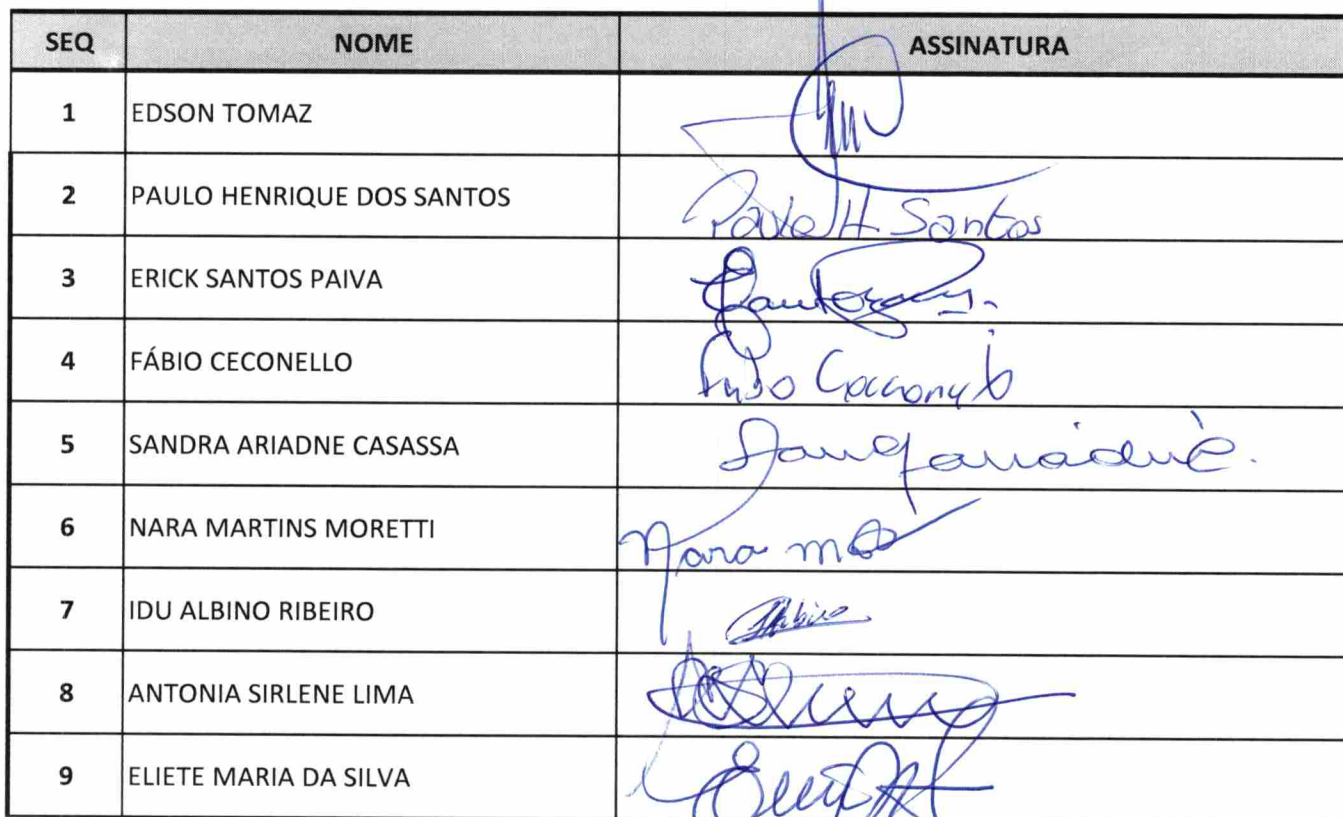 SEQ NOME ASSINATURA
1 EDSON TOMAZ
2 PAULO HENRIQUE DOS SANTOS Paulo H Santos
3 ERICK SANTOS PAIVA
4 FÁBIO CECONELLO
5 SANDRA ARIADNE CASASSA
6 NARA MARTINS MORETTI Nara
7 IDU ALBINO RIBEIRO
8 ANTONIA SIRLENE LIMA
9 ELIETE MARIA DA SILVA